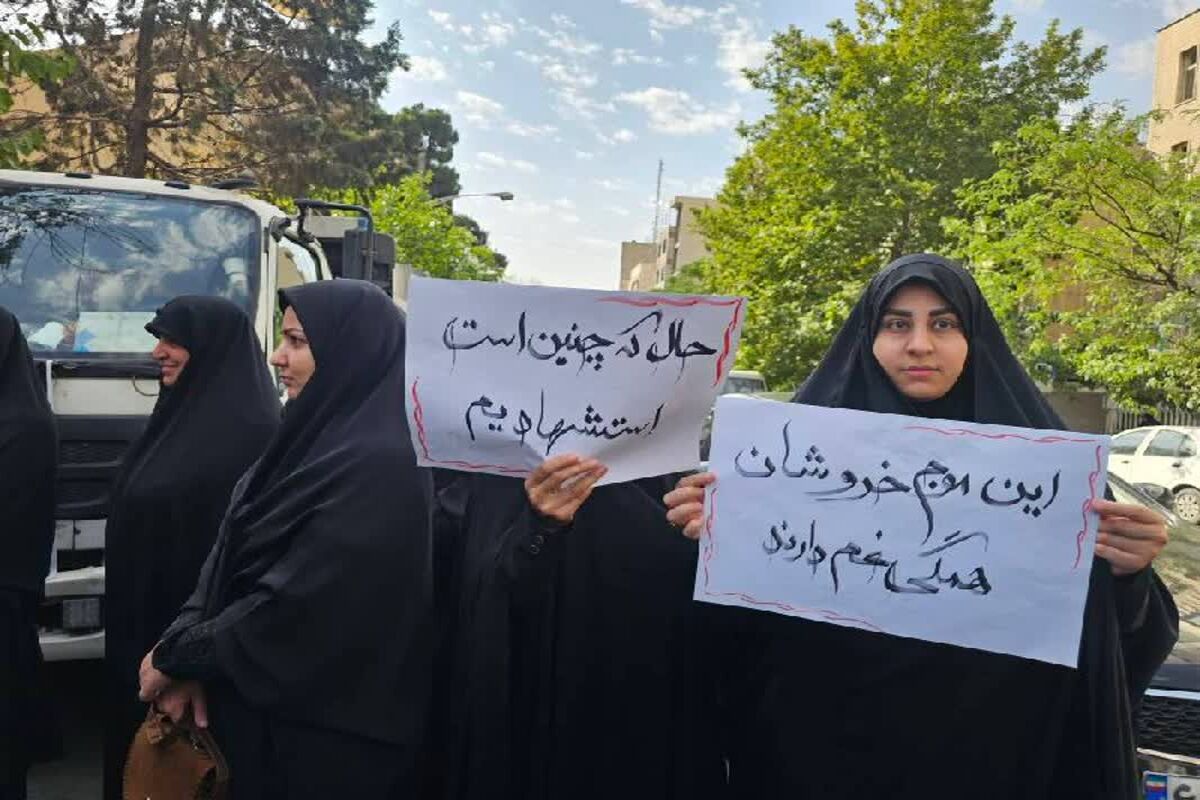 این موج خروشان
همگی غم دارند
حال که چنین است
استشهادیم